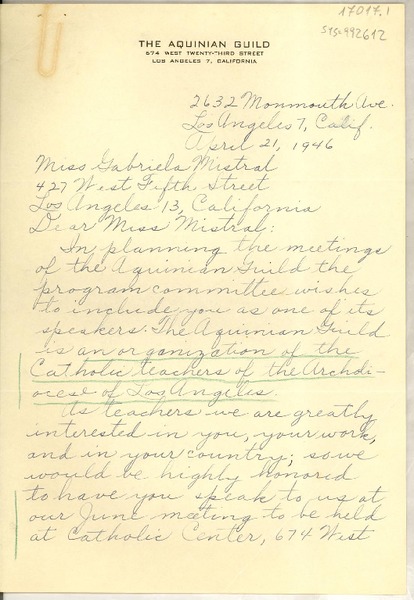 17017.1
THE AQUINIAN GUILD
674 WEST TWENTY-THIRD STREET
LOS ANGELES 7, CALIFORNIA
2632 Monmouth Ave.
Los Angeles 7, Calif.
April 21, 1946
Miss Gabriela Mistral
427 West Fifth Street
Los Angeles 13, California
Dear Miss Mistral:
In planning the meetings
of the Aquinian Guild the
program committee wishes
to include you as one of its
speakers. The Aquinian Guild
is an organization of the
Catholic teachers of the Archdi-
ocese of Los Angeles.
As teachers we are greatly
interested in you, your work,
and in your country; so we
would be highly honored
to have you speak to us at
our June meeting to be held
at Catholic Center, 674 West